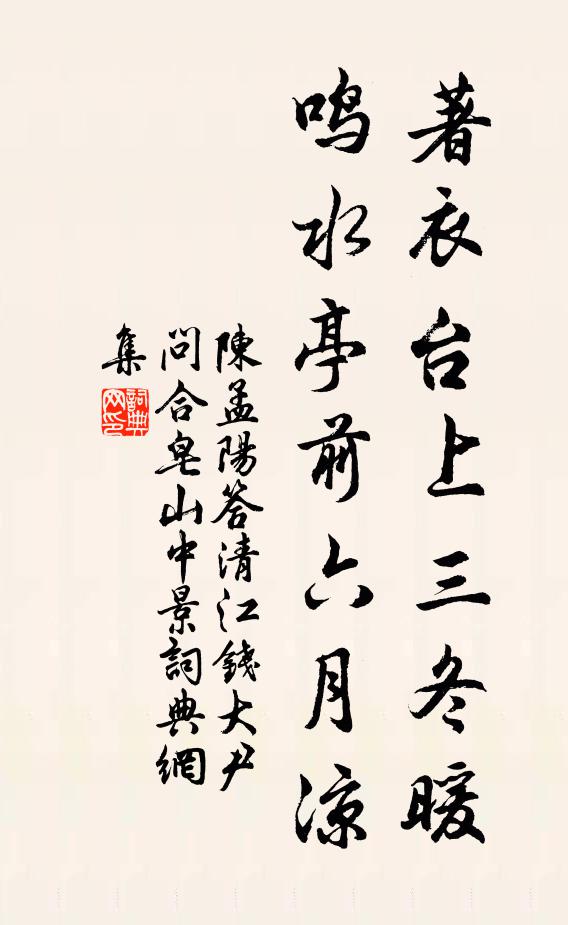 著衣台上三冬暖
鸣水亭前六月凉
陳孟陽答清江錢大尹
问合皂山中景詞典網
集
詞典
网印